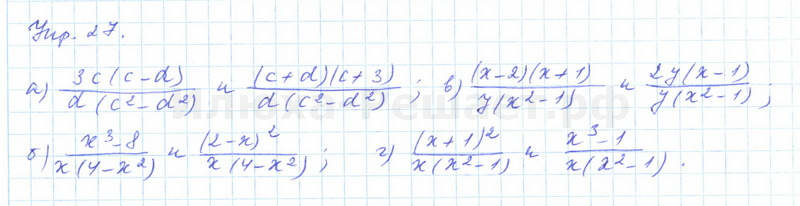 Упр. 27.
а) 3c(c-d)/d(c²-d²) и (c+d)(c+3)/d(c²-d²); в) (x-2)(x+1)/y(x²-1) и 2y(x-1)/y(x²-1);
б) x³-8/x(4-x²) и (2-x)²/x(4-x²); г) (x+1)²/x(x²-1) и x³-1/x(x²-1).